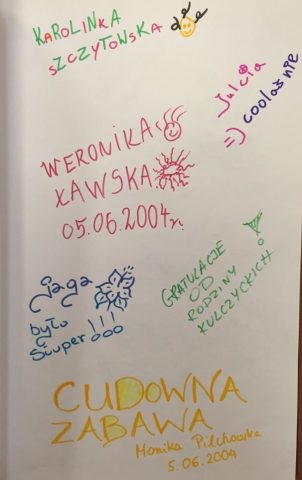 KAROLINKA
SZCZYTOWSKA
Julcia
=) coolaśnie
WERONIKA
ŁAWSKA
05.06.2004r.
jaga
było
Siuuper!!!
GRATULACJE
OD
RODZINY
KULCZYCKICH!
CUDOWNA
ZABAWA
Monika Pilchowska
5.06.2004